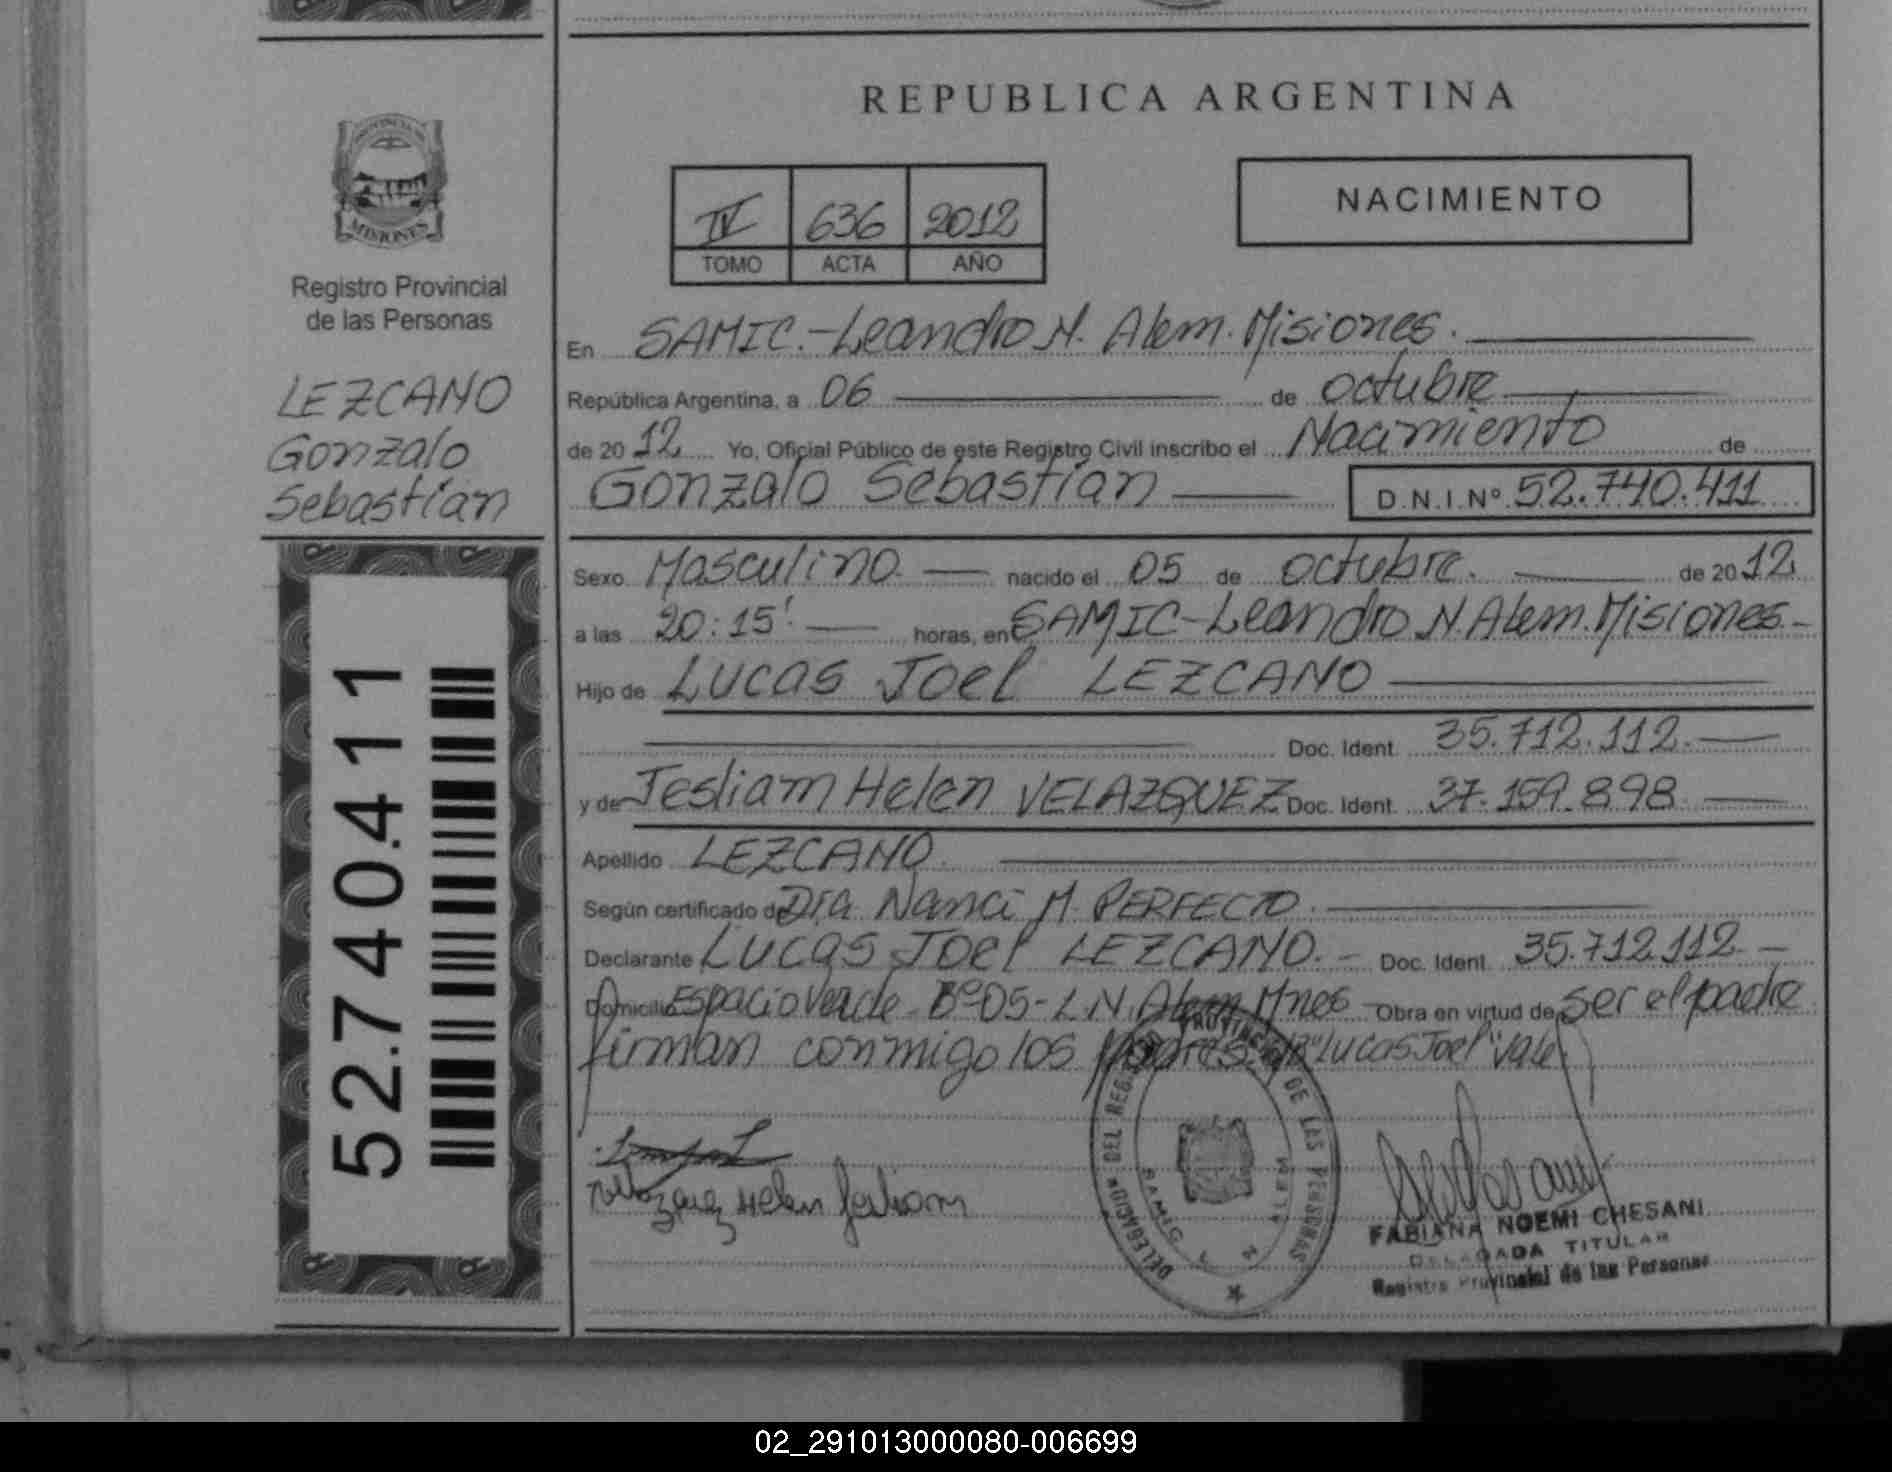 REPUBLICA ARGENTINA
PROVINCIA DE
MISIONES
Registro Provincial
de las Personas
LEZCANO
Gonzalo
Sebastian
52.740.411
IV 636 2012
TOMO ACTA AÑO
NACIMIENTO
En SAMIC.-Leandro N. Alem. Misiones.
República Argentina, a 06 de octubre
de 2012 Yo, Oficial Público de este Registro Civil inscribo el Nacimiento de
Gonzalo Sebastian D.N.I.Nº 52.740.411
Sexo Masculino nacido el 05 de octubre. de 2012
a las 20:15' horas, en SAMIC-Leandro N. Alem. Misiones-
Hijo de Lucas Joel LEZCANO
Doc. Ident. 35.712.112.
y de Jesliam Helen VELAZQUEZ Doc. Ident. 37.159.898
Apellido LEZCANO.
Según certificado de Dra Nanci M. PERFECTO.
Declarante Lucas Joel LEZCANO. - Doc. Ident. 35.712.112 -
Domicilio Espacio Verde Bº 05-L.N. Alem Mnes Obra en virtud de ser el padre
firman conmigo los padres. "Lucas Joel" Vale.
Helen
DELEGACION DEL REG. PROVINCIAL DE LAS PERSONAS
SAMIC L. N. ALEM
FABIANA NOEMI CHESANI
DELEGADA TITULAR
Registro Provincial de las Personas
02_291013000080-006699